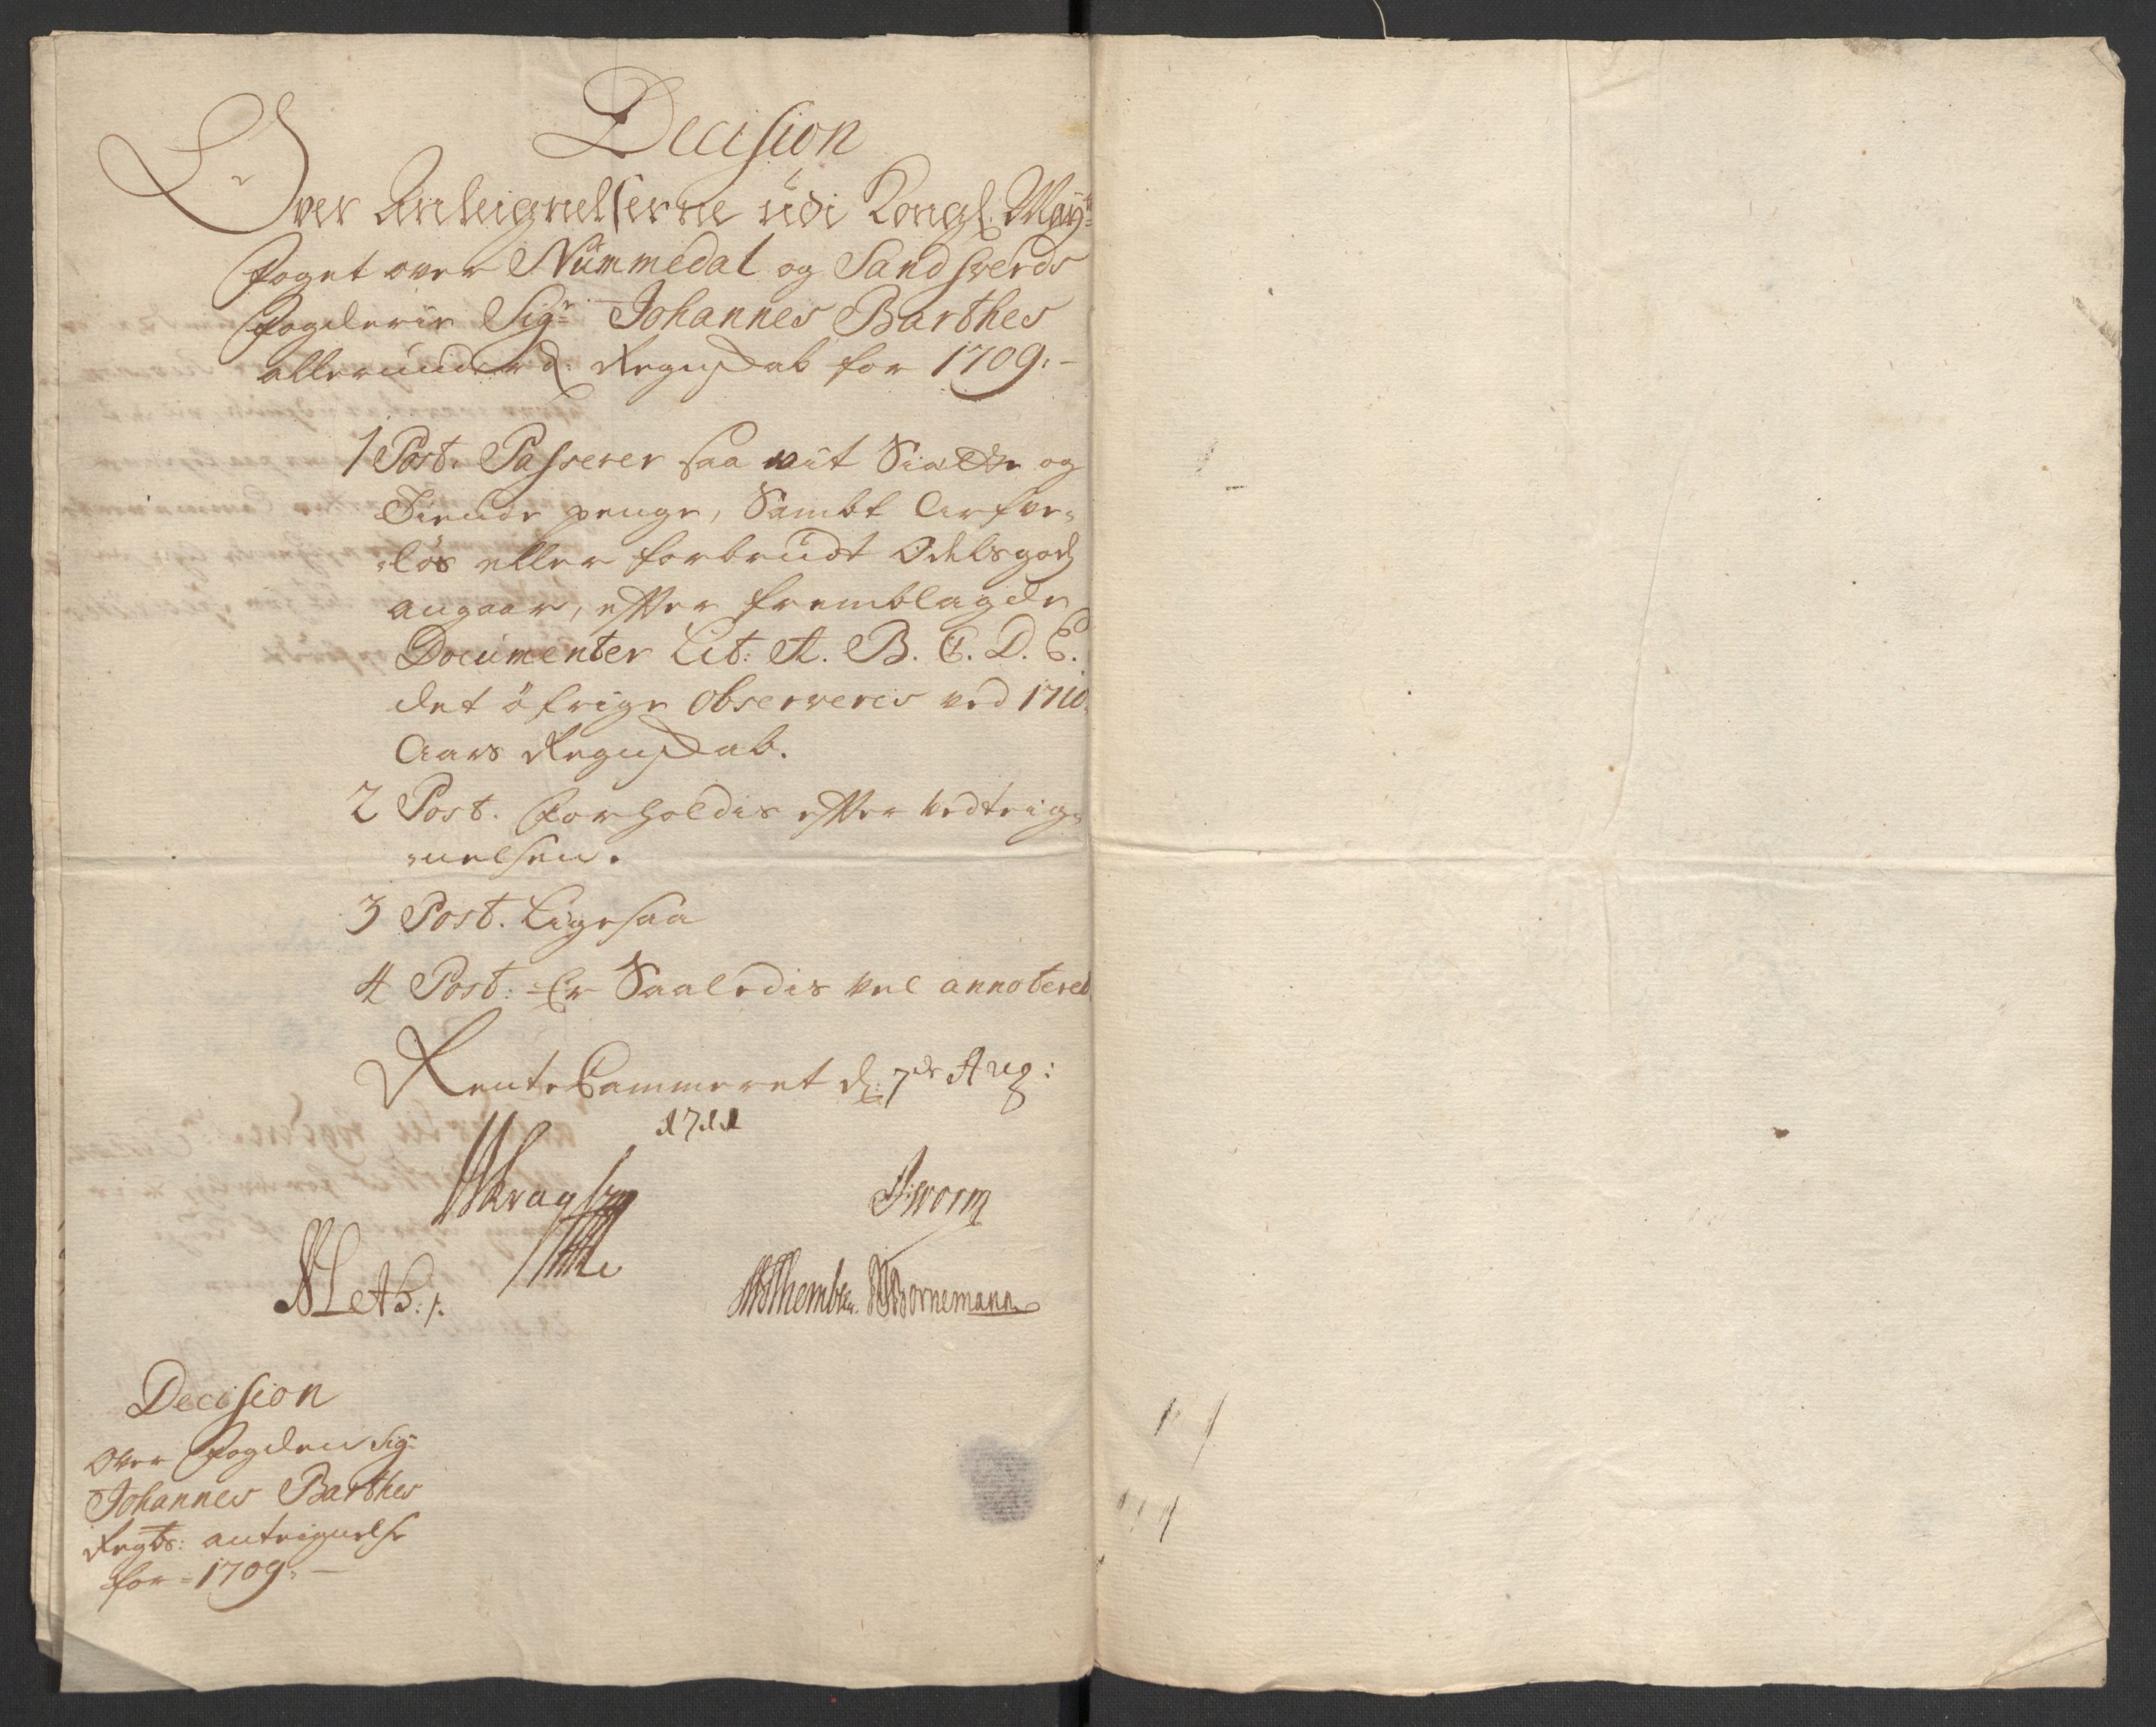 Decision
Over Anteignelserne udi Kongl. Mayts
Foget over Nummedal og Sandsverds
Fogderie Sigr Johannes Barthes
allerunderd: Regnskab for 1709:-
1 Post. Passerer saa vit Siette og
Tiende penge, Sambt Arfve-
-løs eller forbrudt Odelsgods
angaar, efter fremblagde
Documenter Lit: A. B. C. D. E.
det öfrige observeres ved 1710.
Aars Regnskab.
2 Post. Forholdis efter Vedteig-
-nelsen.
3 Post. Ligesaa
4 Post: Er Saaledis vel annotered
RenteCammeret d: 7de Aug:
1711
JWorm
Bornemann
Decision
Over Fogden Sigr
Johannes Barthes
Regbs: anteignelse
for - 1709:-